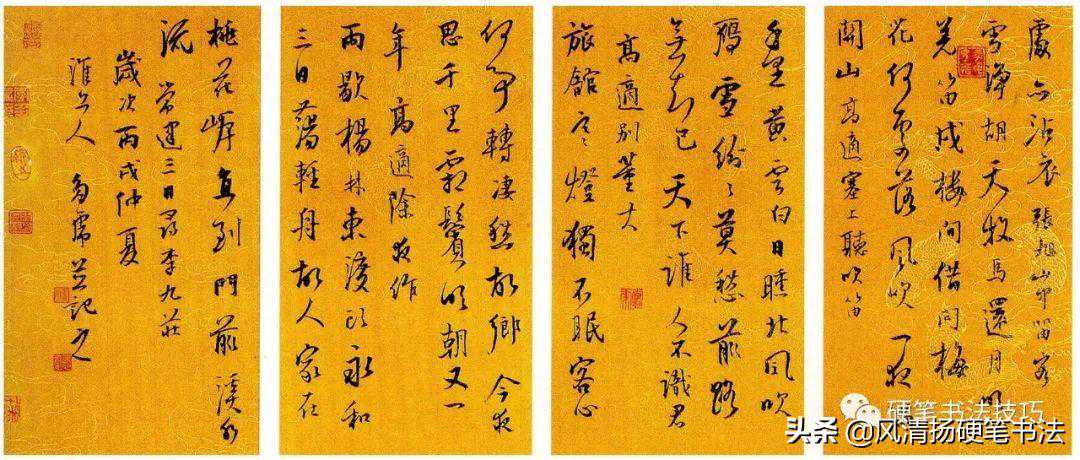 處亦沾衣 張旭山中留客
雪淨胡天牧馬還月明
羌笛戍樓間借問梅
花何處落風吹一夜
關山 高適塞上聽吹笛
千里黃雲白日曛北風吹
雁雪紛々莫愁前路
無知己天下誰人不識君
高適別董大
旅館寒燈獨不眠客心
何事轉淒然故鄉今夜
思千里霜鬢明朝又一
年 高適除夜作
雨歇楊林東渡頭永和
三日蕩輕舟故人家在
桃花岸直到門前溪水
流 常建三日尋李九莊
歲次丙戌仲夏
淮上人 並記之
硬笔书法技巧
头条 @风清扬硬笔书法